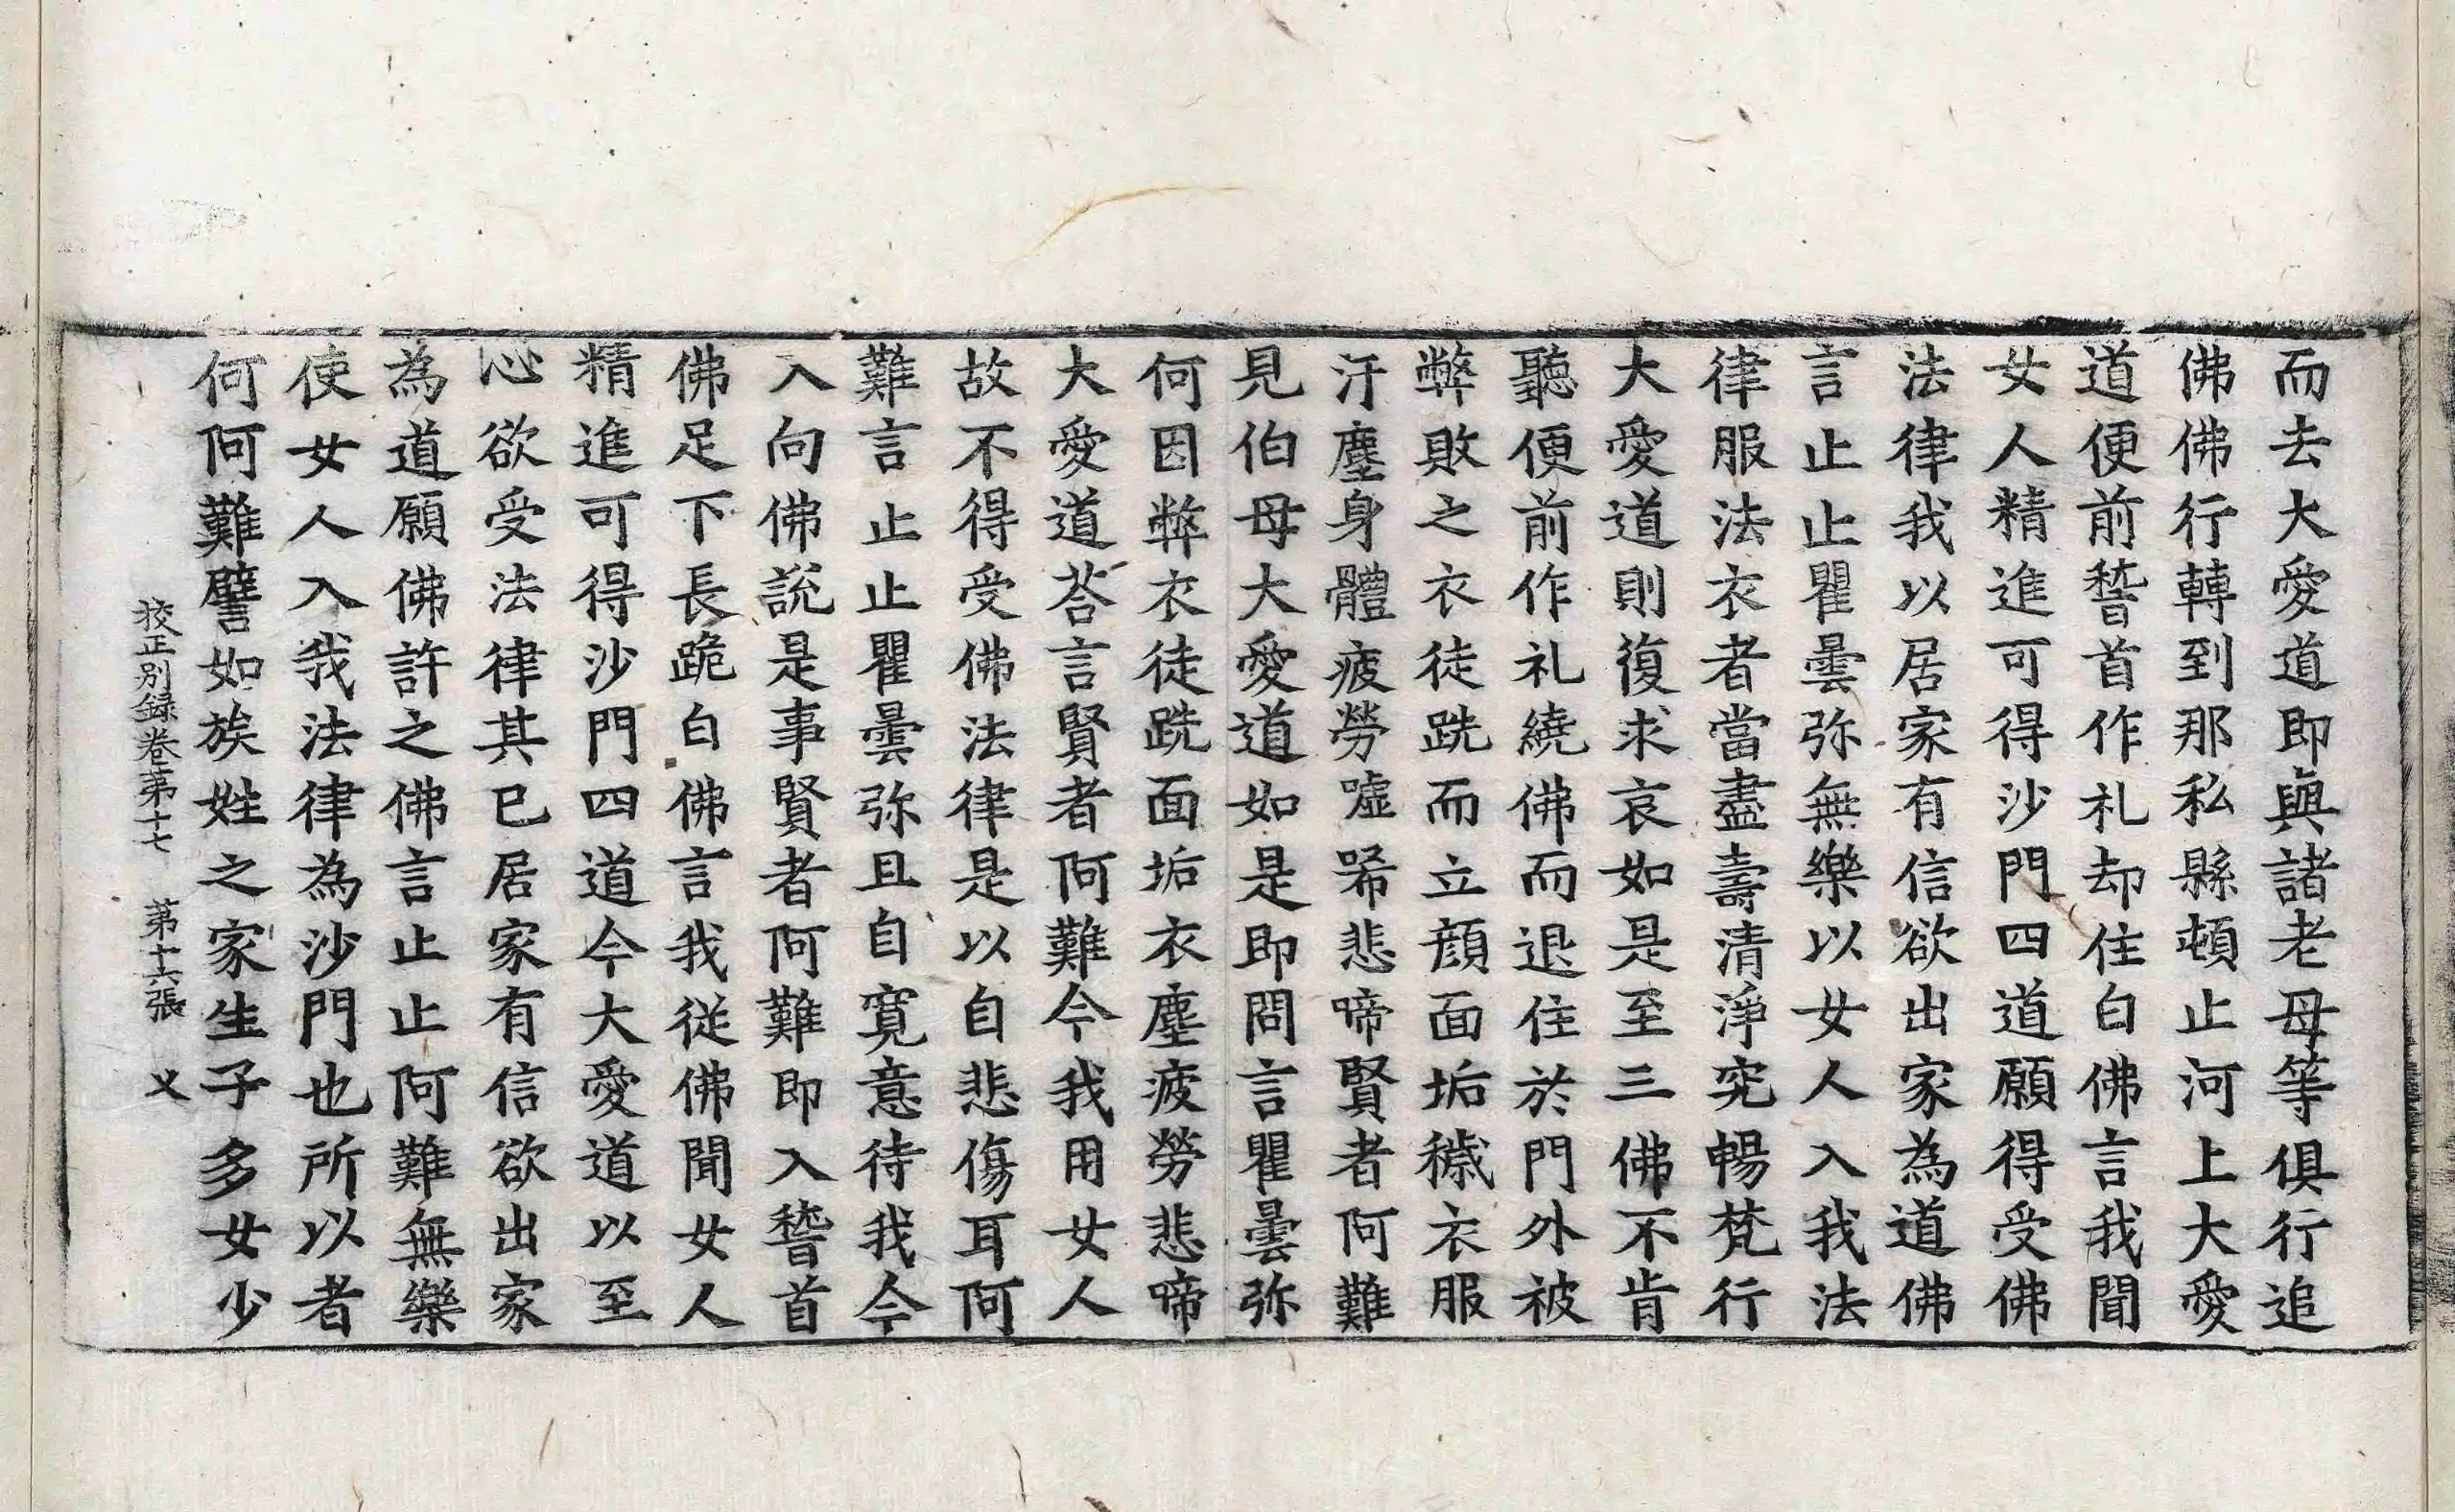 而去大愛道即與諸老母等俱行追
佛佛行轉到那私縣頓止河上大愛
道便前稽首作礼却住白佛言我聞
女人精進可得沙門四道願得受佛
法律我以居家有信欲出家為道佛
言止止瞿曇弥無樂以女人入我法
律服法衣者當盡壽清淨究暢梵行
大愛道則復求哀如是至三佛不肯
聽便前作礼繞佛而退住於門外被
弊敗之衣徒跣而立顔面垢穢衣服
汙塵身體疲勞噓唏悲啼賢者阿難
見伯母大愛道如是即問言瞿曇弥
何因弊衣徒跣面垢衣塵疲勞悲啼
大愛道荅言賢者阿難今我用女人
故不得受佛法律是以自悲傷耳阿
難言止止瞿曇弥且自寬意待我今
入向佛說是事賢者阿難即入稽首
佛足下長跪白佛言我從佛聞女人
精進可得沙門四道今大愛道以至
心欲受法律其已居家有信欲出家
為道願佛許之佛言止止阿難無樂
使女人入我法律為沙門也所以者
何阿難譬如族姓之家生子多女少
挍正別録卷第十七 第十六張 乂